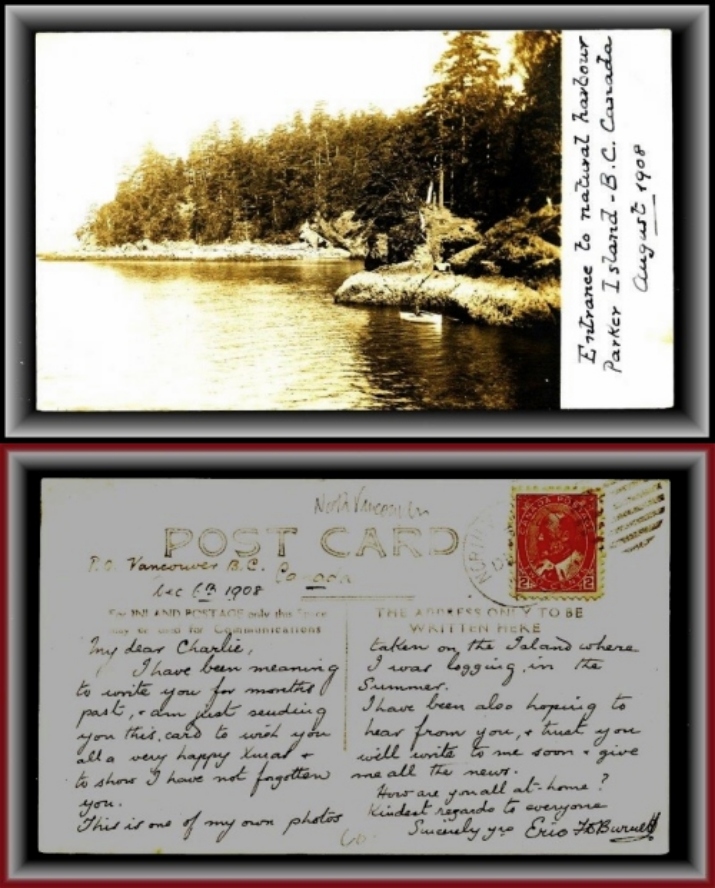 Entrance to natural harbour
Parker Island - B.C. Canada
August 1908
North Vancouver
POST CARD
P.O. Vancouver B.C. Canada
Dec 6th 1908
For INLAND POSTAGE only this Space
may be used for Communications
THE ADDRESS ONLY TO BE
WRITTEN HERE
CANADA POSTAGE
2 2
NORTH
My dear Charlie,
I have been meaning
to write you for months
past, & am just sending
you this card to wish you
all a very happy Xmas &
to show I have not forgotten
you.
This is one of my own photos
taken on the Island where
I was logging in the
Summer.
I have been also hoping to
hear from you, & trust you
will write to me soon & give
me all the news.
How are you all at home?
Kindest regards to everyone
Sincerely yrs Eric Burnett